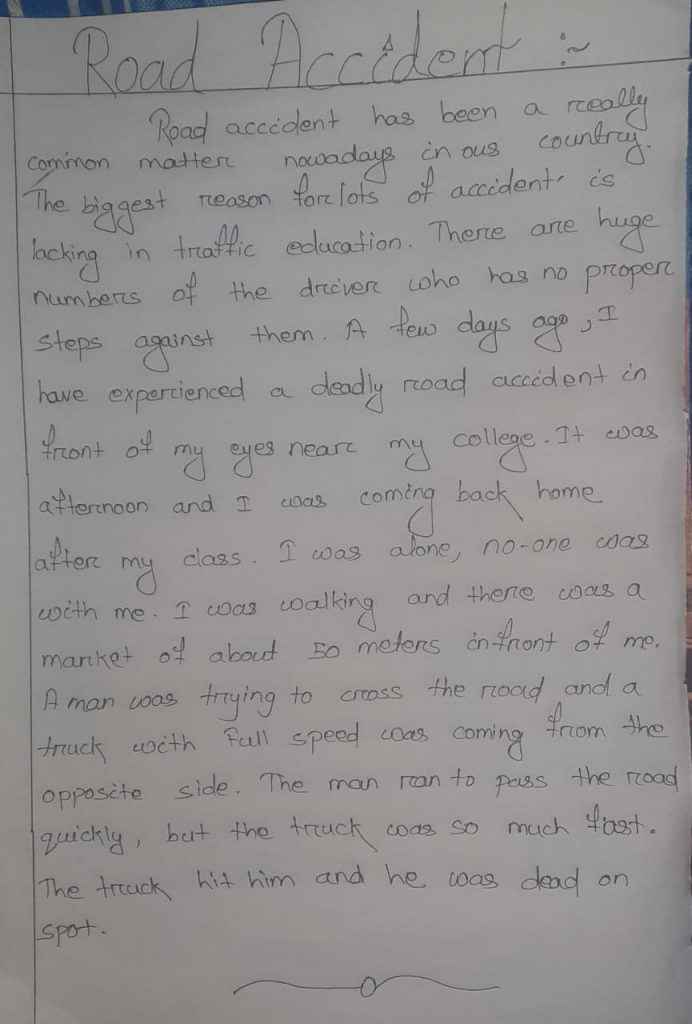 Road Accident :~
Road accident has been a really
common matter nowadays in ous country.
The biggest reason for lots of accident is
lacking in traffic education. There are huge
numbers of the driver who has no proper
steps against them. A few days ago, I
have experienced a deadly road accident in
front of my eyes near my college. It was
afternoon and I was coming back home
after my class. I was alone, no-one was
with me. I was walking and there was a
market of about 50 meters infront of me.
A man was trying to cross the road and a
truck with Full speed was coming from the
opposite side. The man ran to pass the road
quickly, but the truck was so much fast.
The truck hit him and he was dead on
spot.